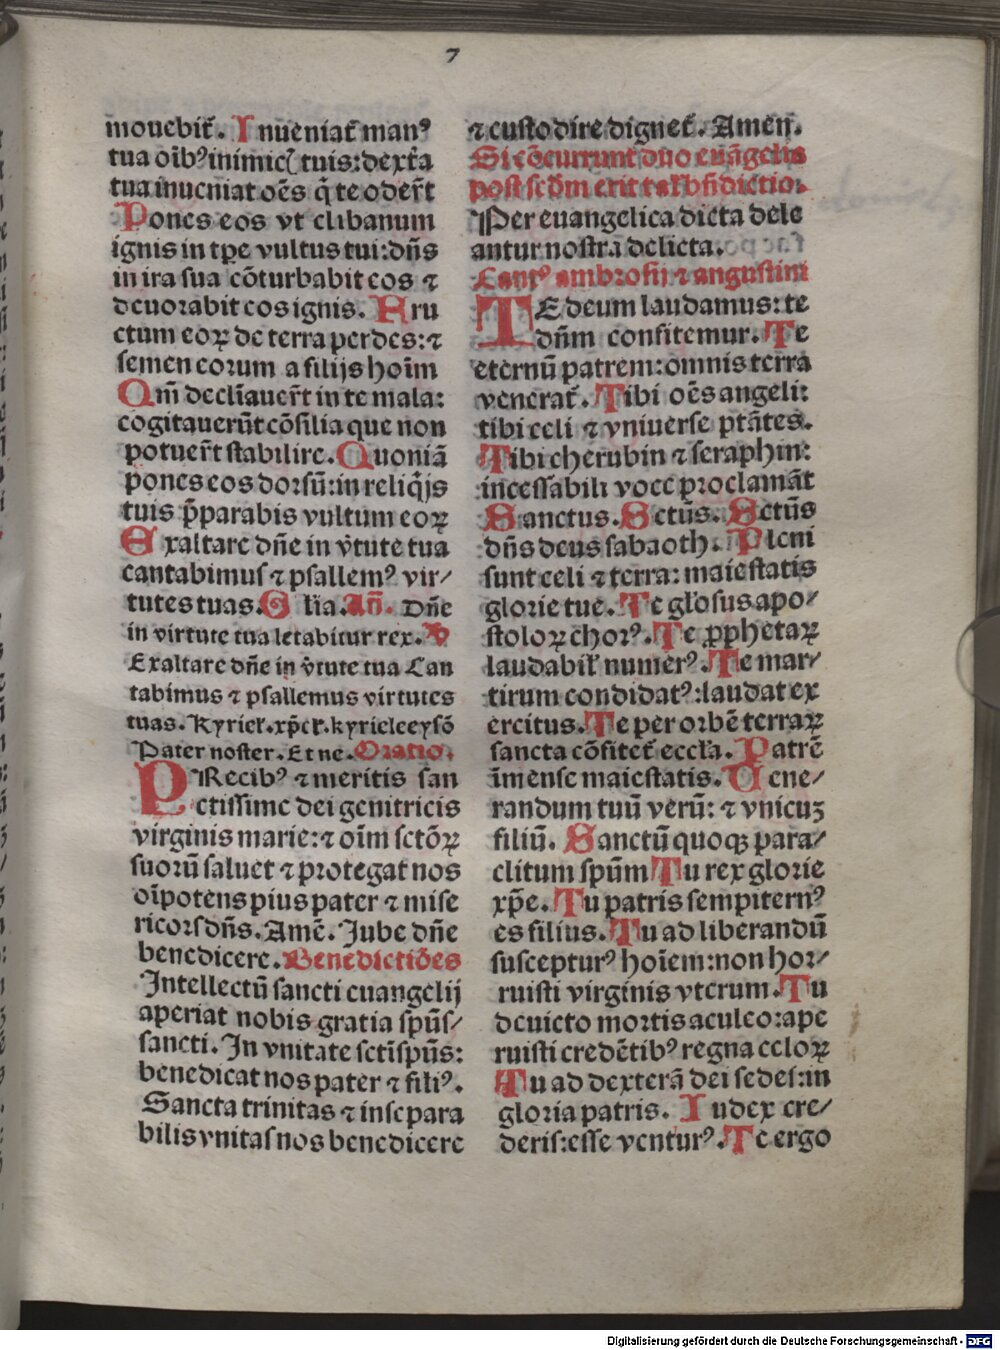 7
mouebit᷑. Inueniat᷑ manꝰ
tua oĩbꝰ inimicʒ tuis: dext᷑a
tua inueniat oẽs q̃ te oder̃t
Pones eos vt clibanum
ignis in tp̃e vultus tui: dñs
in ira sua cõturbabit eos ⁊
deuorabit eos ignis. Fru
ctum eoꝝ de terra perdes: ⁊
semen eorum a filijs hoĩm
Qm̃ declĩauer̃t in te mala:
cogitauerũt cõsilia que non
potuer̃t stabilire. Quoniã
pones eos dorsũ: in reliq̃js
tuis p̃parabis vultum eoꝝ
Exaltare dñe in v̓tute tua
cantabimus ⁊ psallemꝰ vir/
tutes tuas. Glia. Añ. Dñe
in virtute tua letabitur rex. V
Exaltare dñe in v̓tute tua Can
tabimus ⁊ psallemus virtutes
tuas. Kyriel̃. xp̃el̃. kyrieleeysõ
Pater noster. Et ne. Oratio.
PRecibꝰ ⁊ meritis san
ctissime dei genitricis
virginis marie: ⁊ oĩm sctõꝝ
suorũ saluet ⁊ protegat nos
oĩpotens pius pater ⁊ mise
ricors dñs. Amẽ. Iube dñe
benedicere. Benedictiões
Intellectũ sancti euangelij
aperiat nobis gratia spũs/
sancti. In vnitate sctĩspũs:
benedicat nos pater ⁊ filiꝰ.
Sancta trinitas ⁊ insepara
bilis vnitas nos benedicere
⁊ custodire dignet᷑. Amen.
Si cõcurrunt duo euãgelia
post scd̃m erit tal̃ bñdictio.
Per euangelica dicta dele
antur nostra delicta.
Cantꝰ ambrosii ⁊ augustini
TE deum laudamus: te
dñm confitemur. Te
eternũ patrem: omnis terra
venerat᷑. Tibi oẽs angeli:
tibi celi ⁊ vniuerse ptãtes.
Tibi cherubin ⁊ seraphin:
incessabili voce proclamãt
Sanctus. Sctũs. Sctũs
dñs deus sabaoth. Pleni
sunt celi ⁊ terra: maiestatis
glorie tue. Te gl̃osus apo/
stoloꝝ chorꝰ. Te ꝓphetaꝝ
laudabil̃ numerꝰ. Te mar/
tirum condidatꝰ: laudat ex
ercitus. Te per orbẽ terraꝝ
sancta cõfitet᷑ eccl̃a. Patrẽ
ĩmense maiestatis. Uene/
randum tuũ verũ: ⁊ vnicuʒ
filiũ. Sanctũ quoqꝫ para/
clitum spũm Tu rex glorie
xp̃e. Tu patris sempiternꝰ
es filius. Tu ad liberandũ
suscepturꝰ hoĩem: non hor/
ruisti virginis vterum. Tu
deuicto mortis aculeo: ape
ruisti credẽtibꝰ regna celoꝝ
Tu ad dexterã dei sedes: in
gloria patris. Iudex cre/
deris: esse venturꝰ. Te ergo
Digitalisierung gefördert durch die Deutsche Forschungsgemeinschaft - DFG